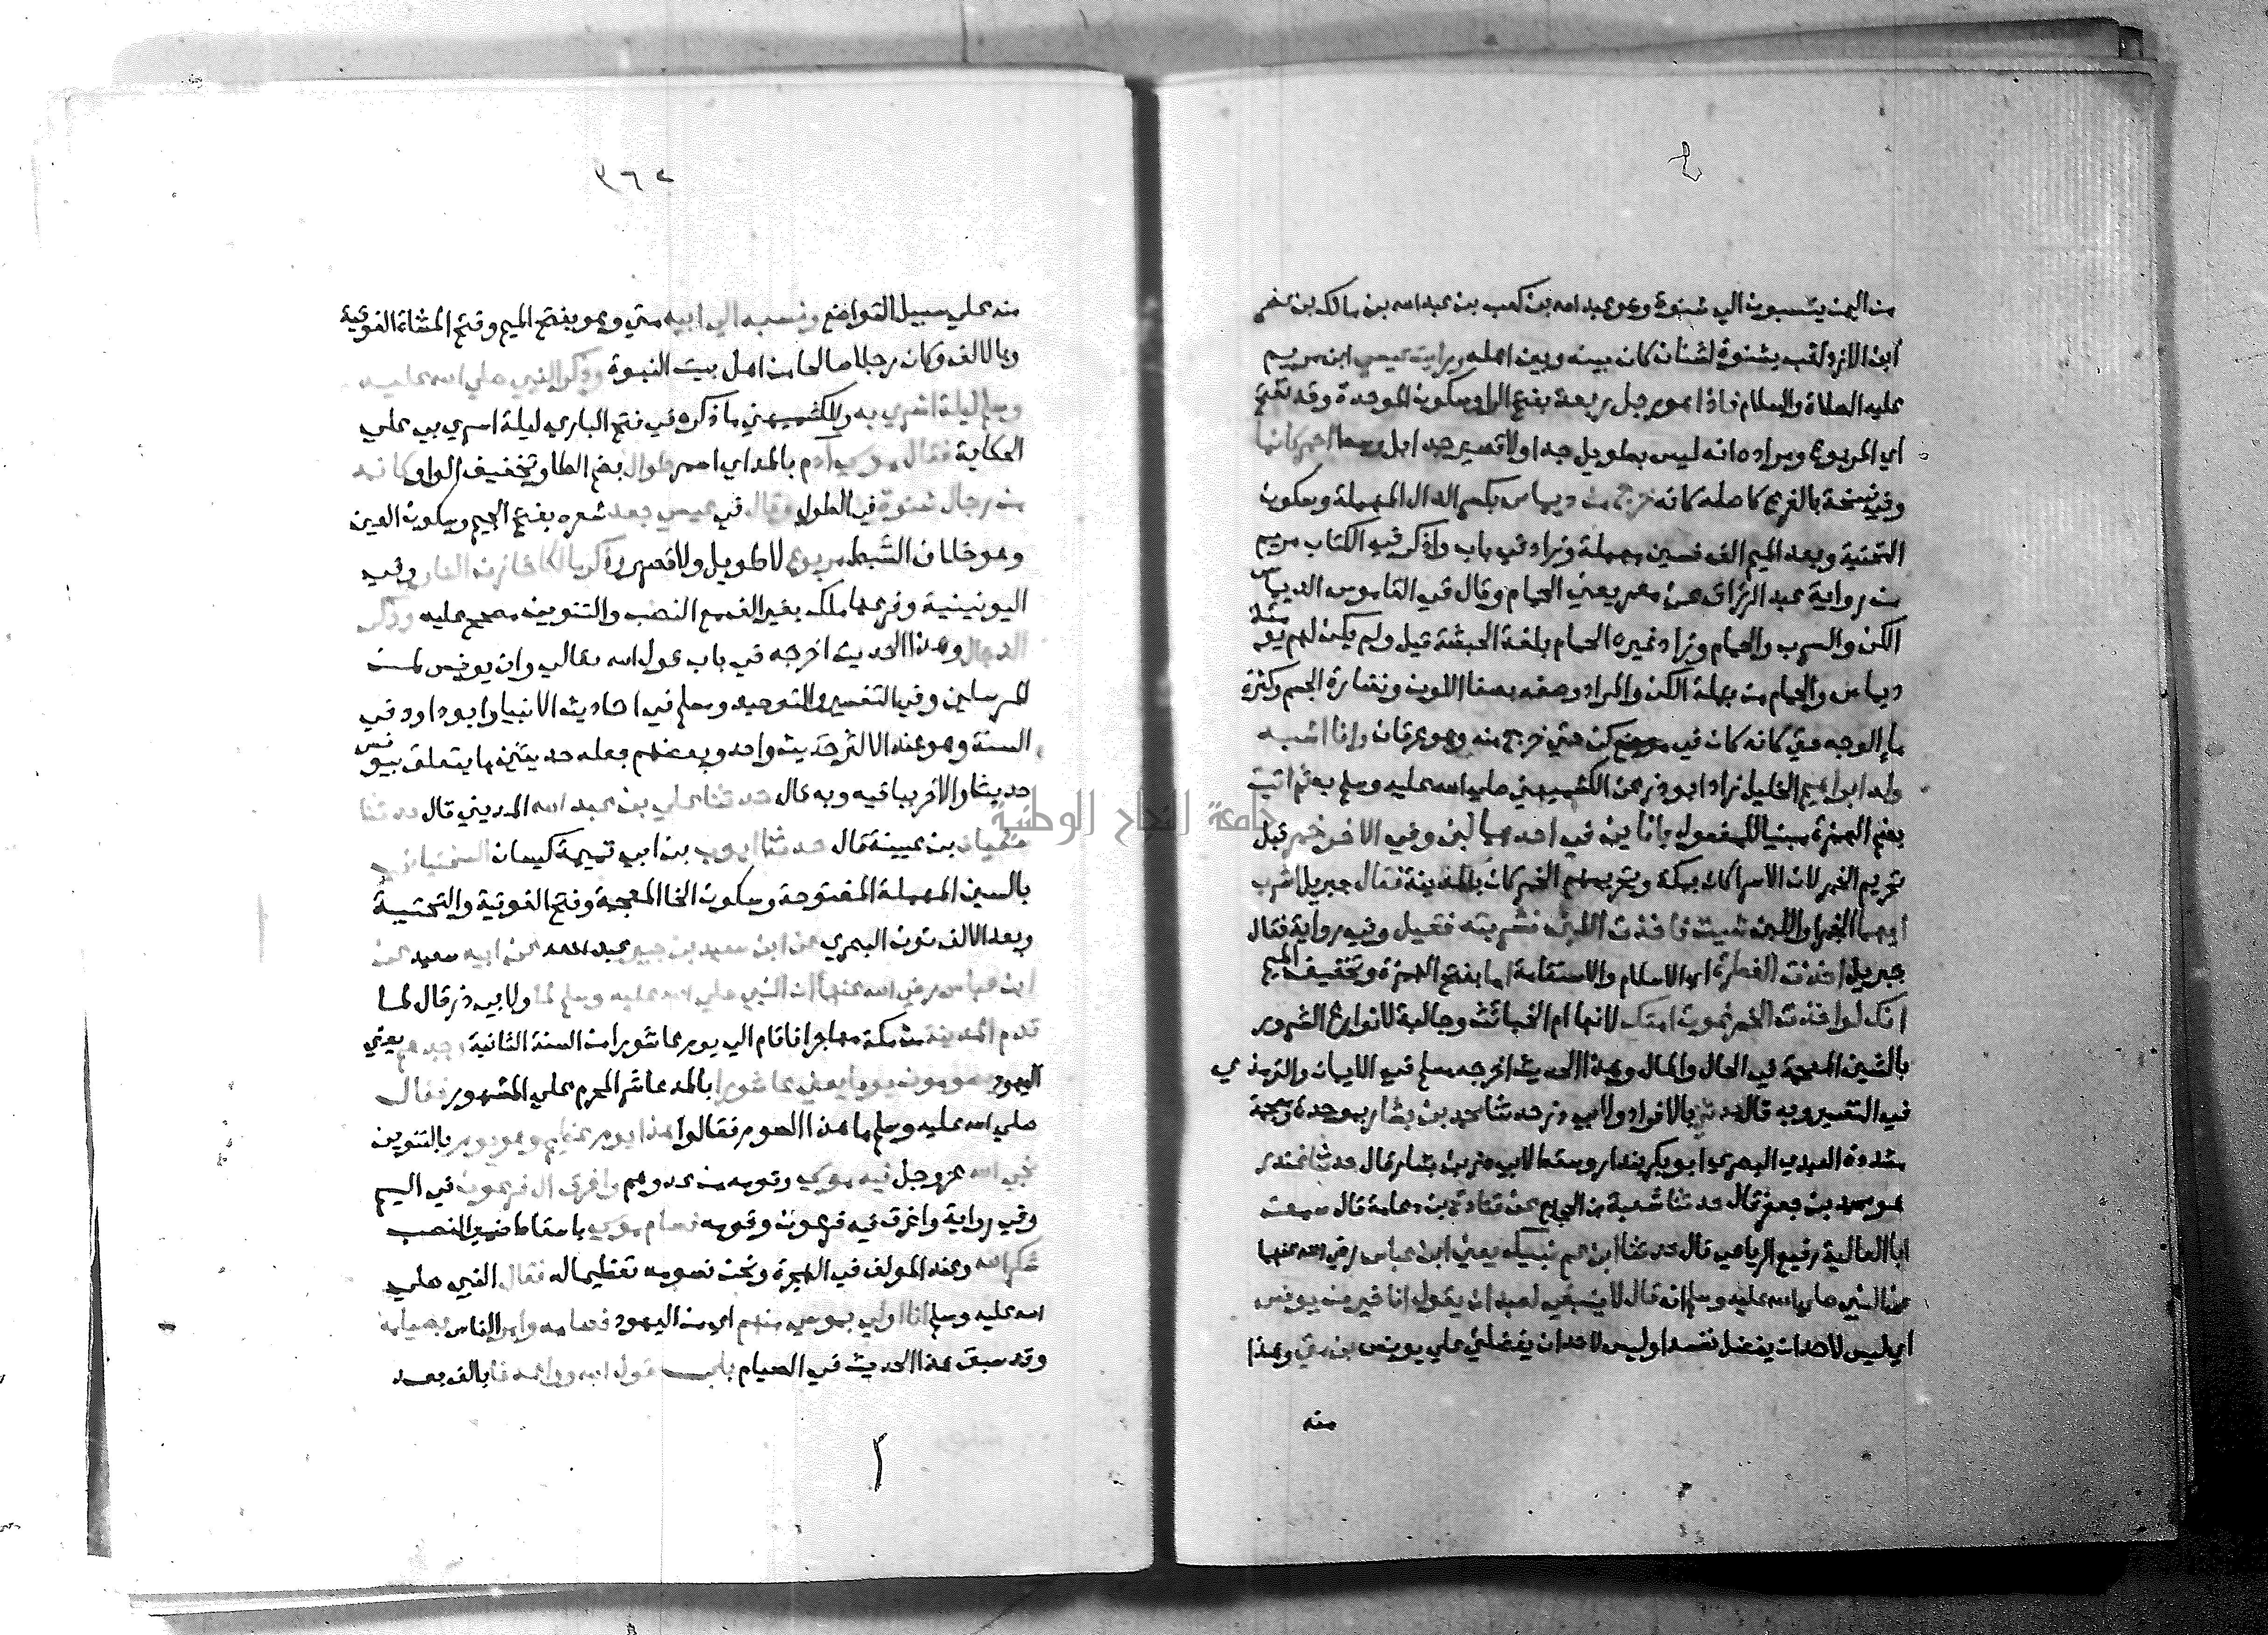 من اليمن ينسبون الي شنوة وهو عبد الله بن كعب بن عبد الله بن مالك بن نضر
ابن الازد لقب بشنوة لشنان كان بينه وبين اهله ورايت عيسي ابن مريم
عليه الصلاة والسلام فاذا هو رجل ربعة بفتح الرا وسكون الموحدة وقد تفتح
اي المربوع ومراده انه ليس بطويل جدا ولا قصير جدا بل وسط احمر كانما
وفي نسخة بالفرع كاصله كانه خرج من ديماس بكسر الدال المهملة وسكون
التحتية وبعد الميم الف فسين مهملة وزاد في باب واذكر في الكتاب مريم
من رواية عبد الرزاق عن معمر يعني الحمام وقال في القاموس الديماس
الكن والسرب والحمام وزاد غيره الحمام بلغة الحبشة قيل ولم يكن لهم يومئذ
ديماس والحمام من جملة الكن والمراد وصفه بصفا اللون ونضارة الجسم وكثرة
ما الوجه حتي كانه كان في موضع كن حتي خرج منه وهو عرقان وانا اشبه
ولد ابراهيم الخليل زاد ابو ذر عن الكشميهني صلي الله عليه وسلم به ثم اتيت
بضم الهمزة مبنيا للمفعول بانا ين في احدهما لبن وفي الاخر خمر قبل
تحريم الخمر لان الاسرا كان بمكة وتحريم الخمر كان بالمدينة فقال جبريل اشرب
ايهما الخمر او اللبن شيت فاخذت اللبن فشربته فقيل وفي رواية فقال
جبريل اخذت الفطرة اي الاسلام والاستقامة اما بفتح الهمزة وتخفيف الميم
انك لو اخذت الخمر غوت امتك لانها ام الخبائث وجالبة لانواع الشرور
بالشين المعجمة في الحال والمال وهذا الحديث اخرجه مسلم في الايمان والترمذي
في التفسير وبه قال حدثني بالافراد ولابي ذر حدثنا محمد بن بشار بموحدة ومعجمة
مشددة العبدي البصري ابو بكر بندار وسقط لابي ذر بن بشار قال حدثنا غندر
هو محمد بن جعفر قال حدثنا شعبة بن الحجاج عن قتادة بن دعامة قال سمعت
ابا العالية رفيع الرياحي قال حدثنا ابن عم نبيكم يعني ابن عباس رضي الله عنهما
عن النبي صلي الله عليه وسلم انه قال لا ينبغي لعبد ان يقول انا خير من يونس
اي ليس لاحد ان يفضل نفسه او ليس لاحد ان يفضلني علي يونس بن متي وهذا
منه
٣٦٢
منه علي سبيل التواضع ونسبه الي ابيه متي وهو بفتح الميم وفتح المثناة الفوقية
وبالالف وكان رجلا صالحا من اهل بيت النبوة وذكر النبي صلي الله عليه
وسلم ليلة اسري به وللكشميهني ما ذكره في فتح الباري ليلة اسري بي علي
الحكاية فقال موسي آدم بالمد اي اسمر طوال بضم الطا وتخفيف الواو كانه
من رجال شنوة في الطول وقال في عيسي جعد شعره بفتح الجيم وسكون العين
وهو خلاف الشبط مربوع لا طويل ولا قصير وذكر مالكا خازن النار وفي
اليونينية وفرعها ملك بغير الف مع النصب والتنوين مصحح عليه وذكر
الدجال وهذا الحديث اخرجه في باب قول الله تعالي وان يونس لمن
المرسلين وفي التفسير والتوحيد ومسلم في احاديث الانبيا وابو داود في
السنة وهو عند الاكثر حديث واحد وبعضهم جعله حديثين ما يتعلق بيونس
حديثا والاخر بباقيه وبه قال حدثنا علي بن عبد الله المديني قال حدثنا
سفيان بن عيينة قال حدثنا ايوب بن ابي تميمة كيسان السختياني
بالسين المهملة المفتوحة وسكون الخا المعجمة وفتح الفوقية والتحتية
وبعد الالف نون البصري عن ابن سعيد بن جبير عبد الله عن ابيه سعيد عن
ابن عباس رضي الله عنهما ان النبي صلي الله عليه وسلم لما ولابي ذر قال لما
قدم المدينة من مكة مهاجرا فاقام الي يوم عاشورا من السنة الثانية وجدهم يعني
اليهود يصومون يوما يعني عاشورا بالمد عاشر المحرم علي المشهور فقال
صلي الله عليه وسلم ما هذا الصوم فقالوا هذا يوم عظيم وهو يوم بالتنوين
نجي الله عز وجل فيه موسي وقومه من عدوهم واغرق ال فرعون في اليم
وفي رواية واغرق فيه فرعون وقومه فصام موسي باسقاط ضمير النصب
شكرا لله وعند المولف في الهجرة ونحن نصومه تعظيما له فقال النبي صلي
الله عليه وسلم انا اولي بموسي منهم اي من اليهود فصامه وامر الناس بصيامه
وقد سبق هذا الحديث في الصيام باب قول الله وواعدنا بالف بعد
جامعة النجاح الوطنية